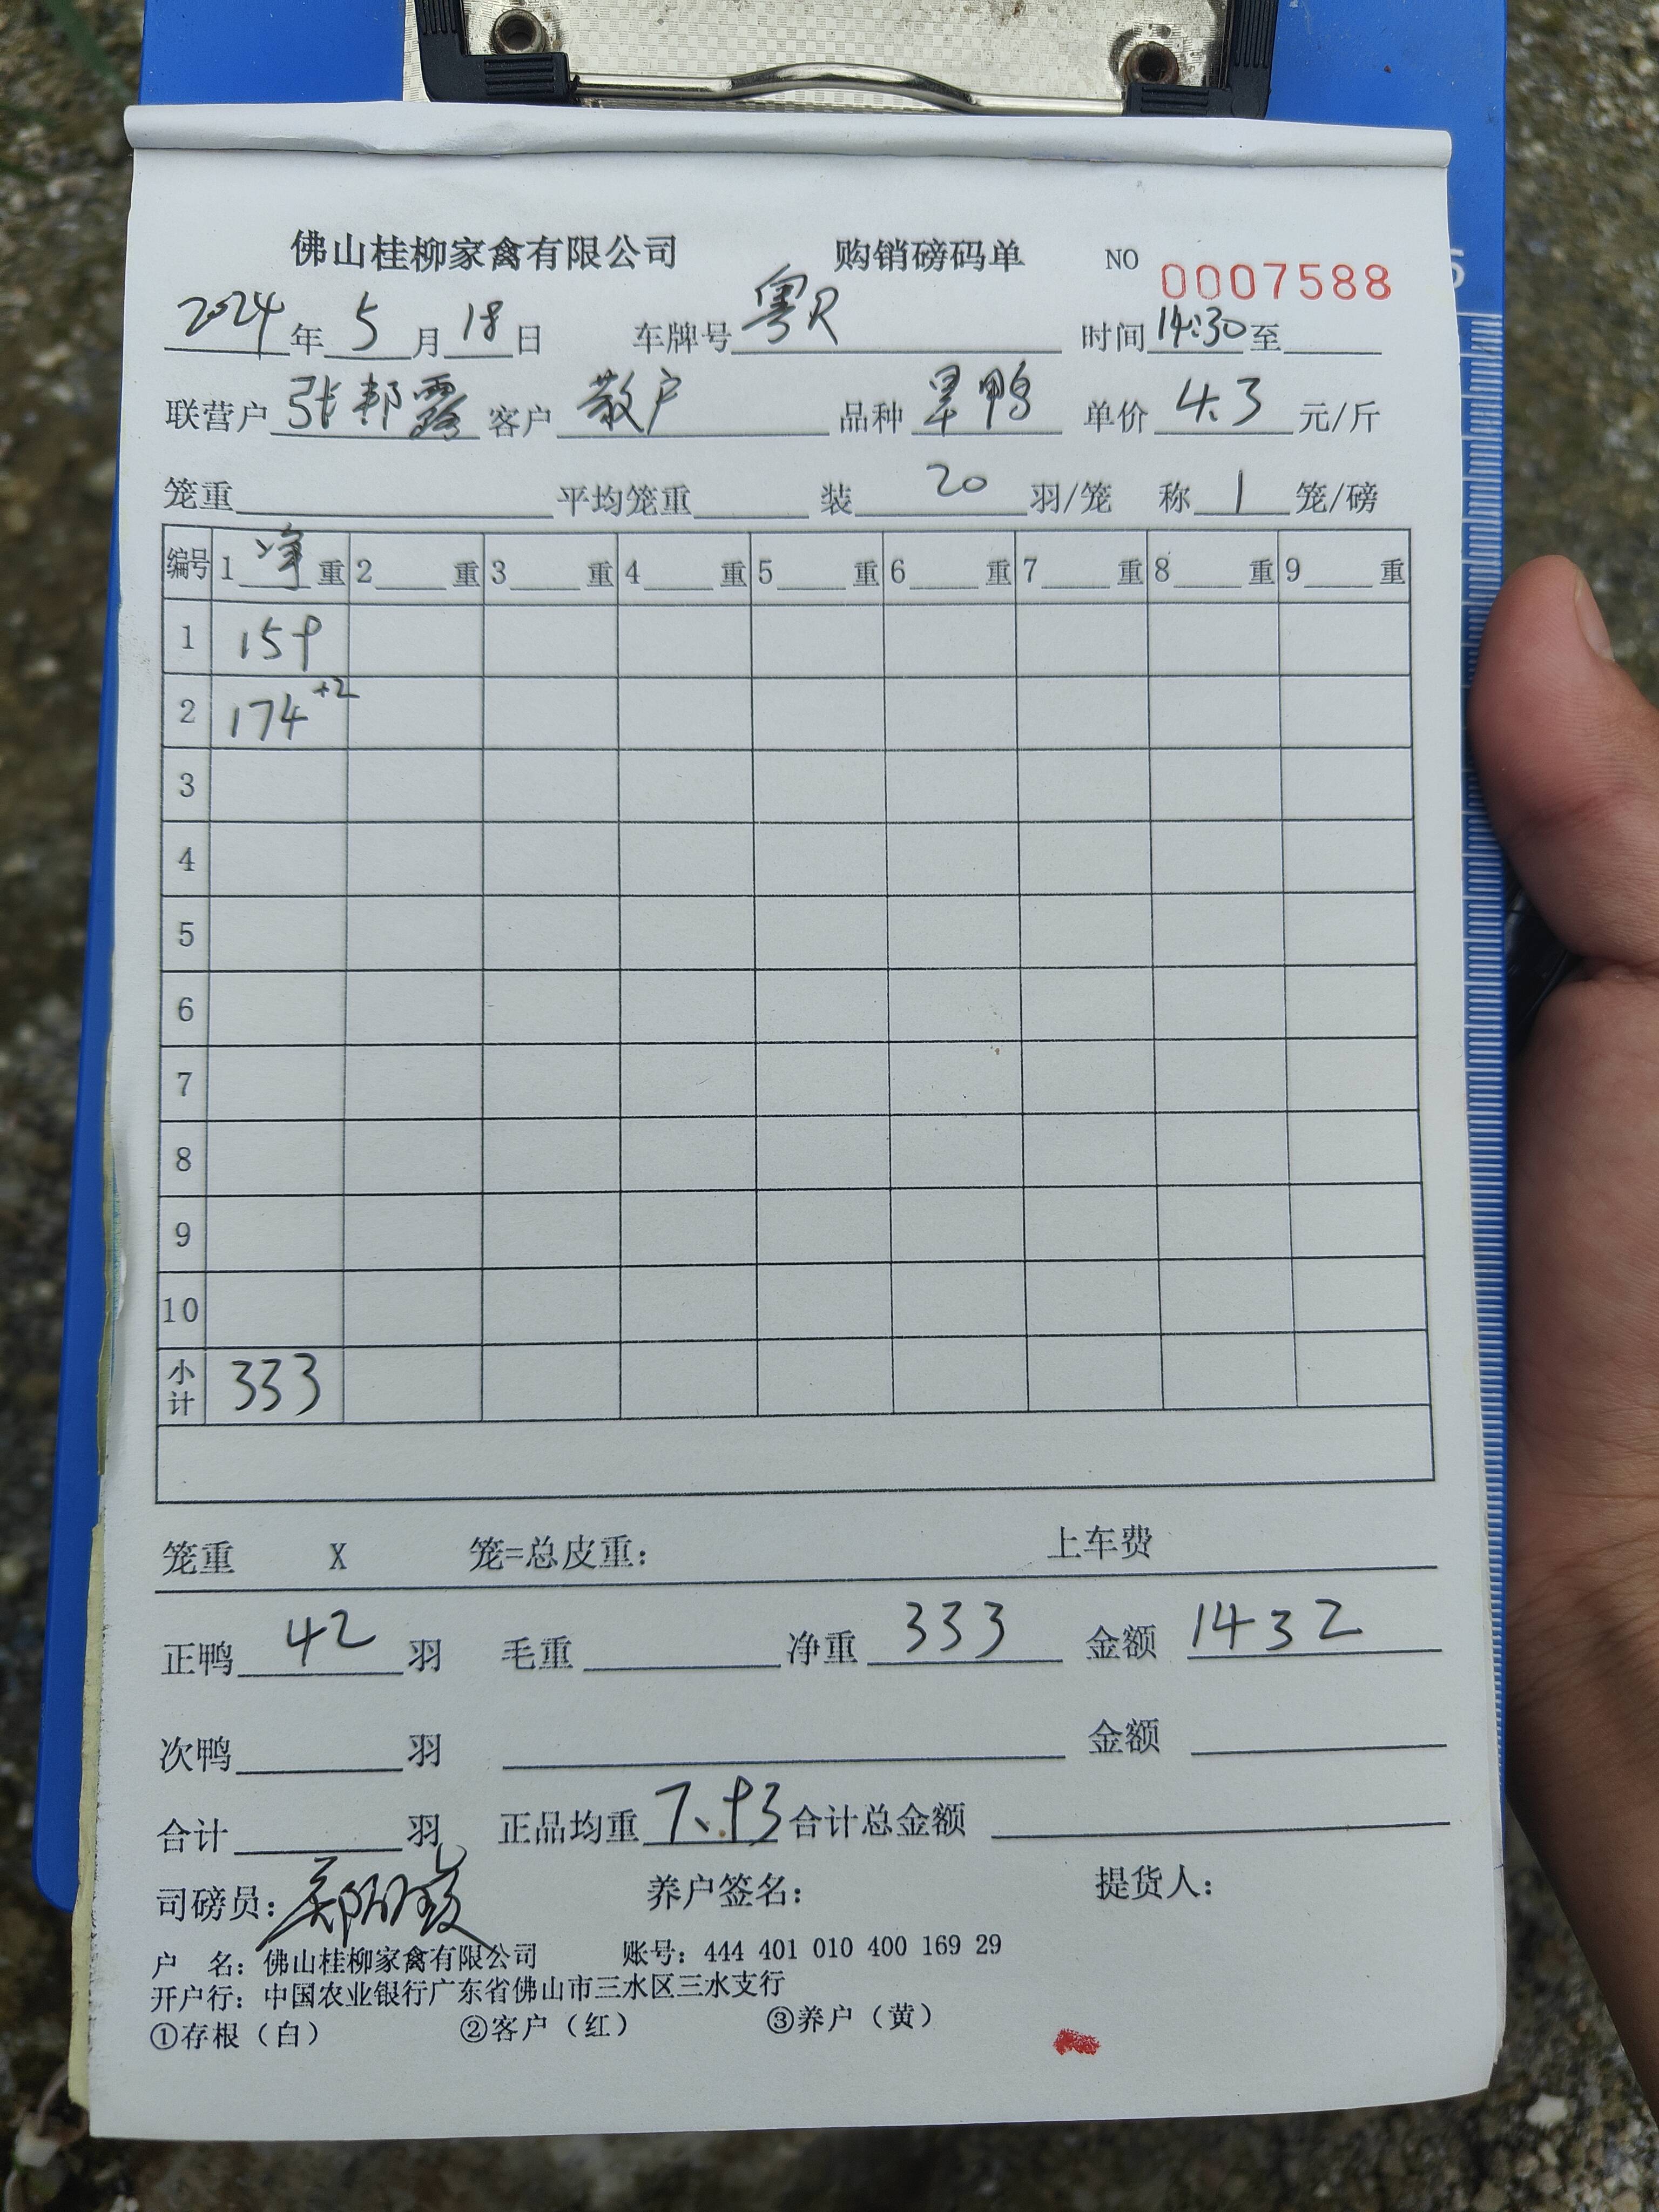 佛山桂柳家禽有限公司 购销磅码单 NO 0007588
2024年5月18日 车牌号粤R 时间14:30至
联营户张邦露 客户散户 品种旱鸭 单价4.3元/斤
笼重 平均笼重 装20羽/笼 称1笼/磅
编号 1净重 2重 3重 4重 5重 6重 7重 8重 9重
1 159
2 174+2
3
4
5
6
7
8
9
10
小计 333
笼重 X 笼=总皮重: 上车费
正鸭42羽 毛重 净重333 金额1432
次鸭 羽 金额
合计 羽 正品均重7.93 合计总金额
司磅员: 养户签名: 提货人:
户 名: 佛山桂柳家禽有限公司 账号: 444 401 010 400 169 29
开户行: 中国农业银行广东省佛山市三水区三水支行
①存根（白） ②客户（红） ③养户（黄）